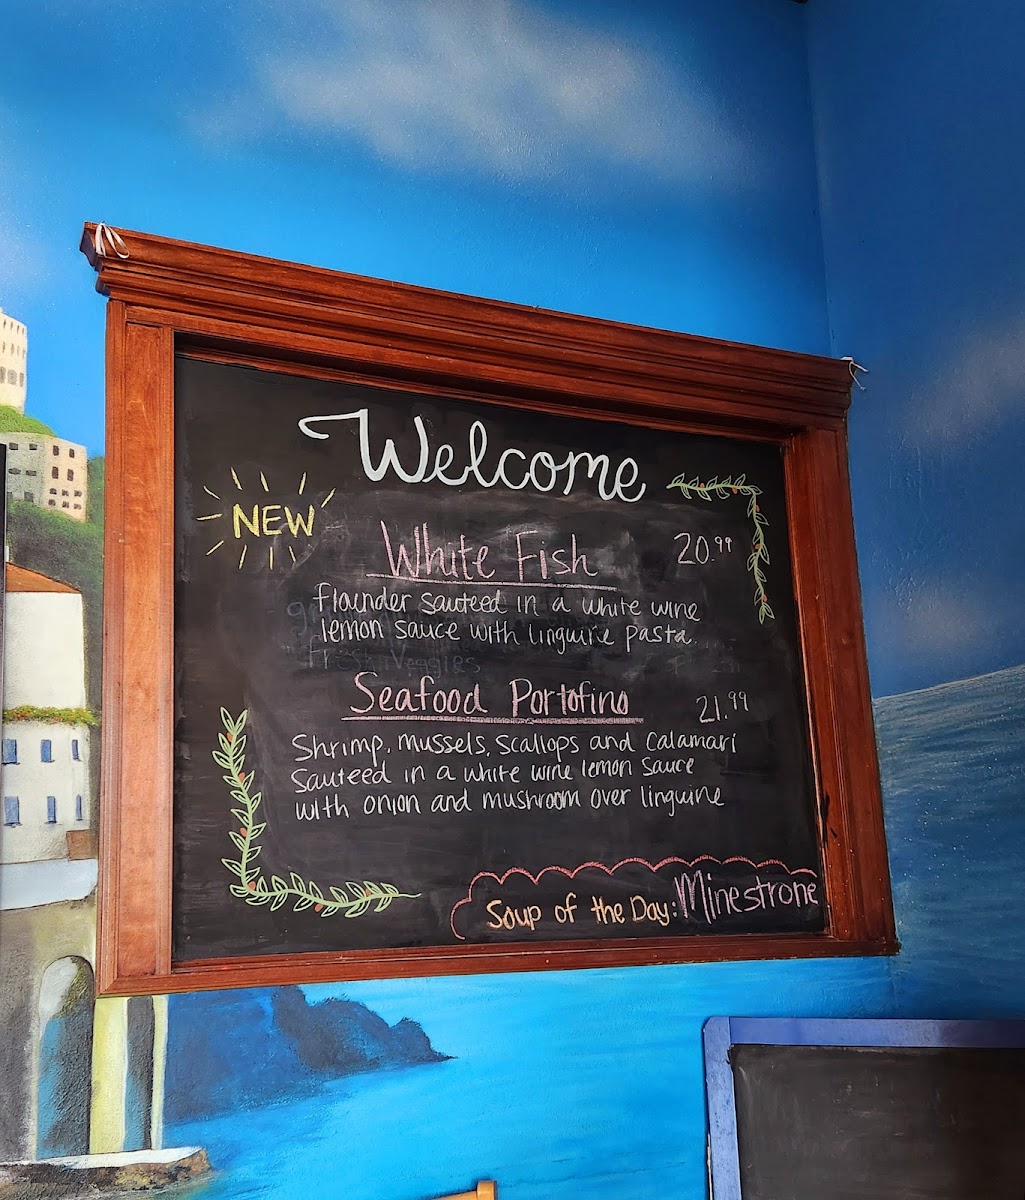 Welcome
NEW
White Fish 20.99
flounder sauteed in a white wine
lemon sauce with linguine pasta.
Fresh Veggies
Seafood Portofino 21.99
Shrimp, mussels, scallops and calamari
sauteed in a white wine lemon sauce
with onion and mushroom over linguine
Soup of the Day: Minestrone